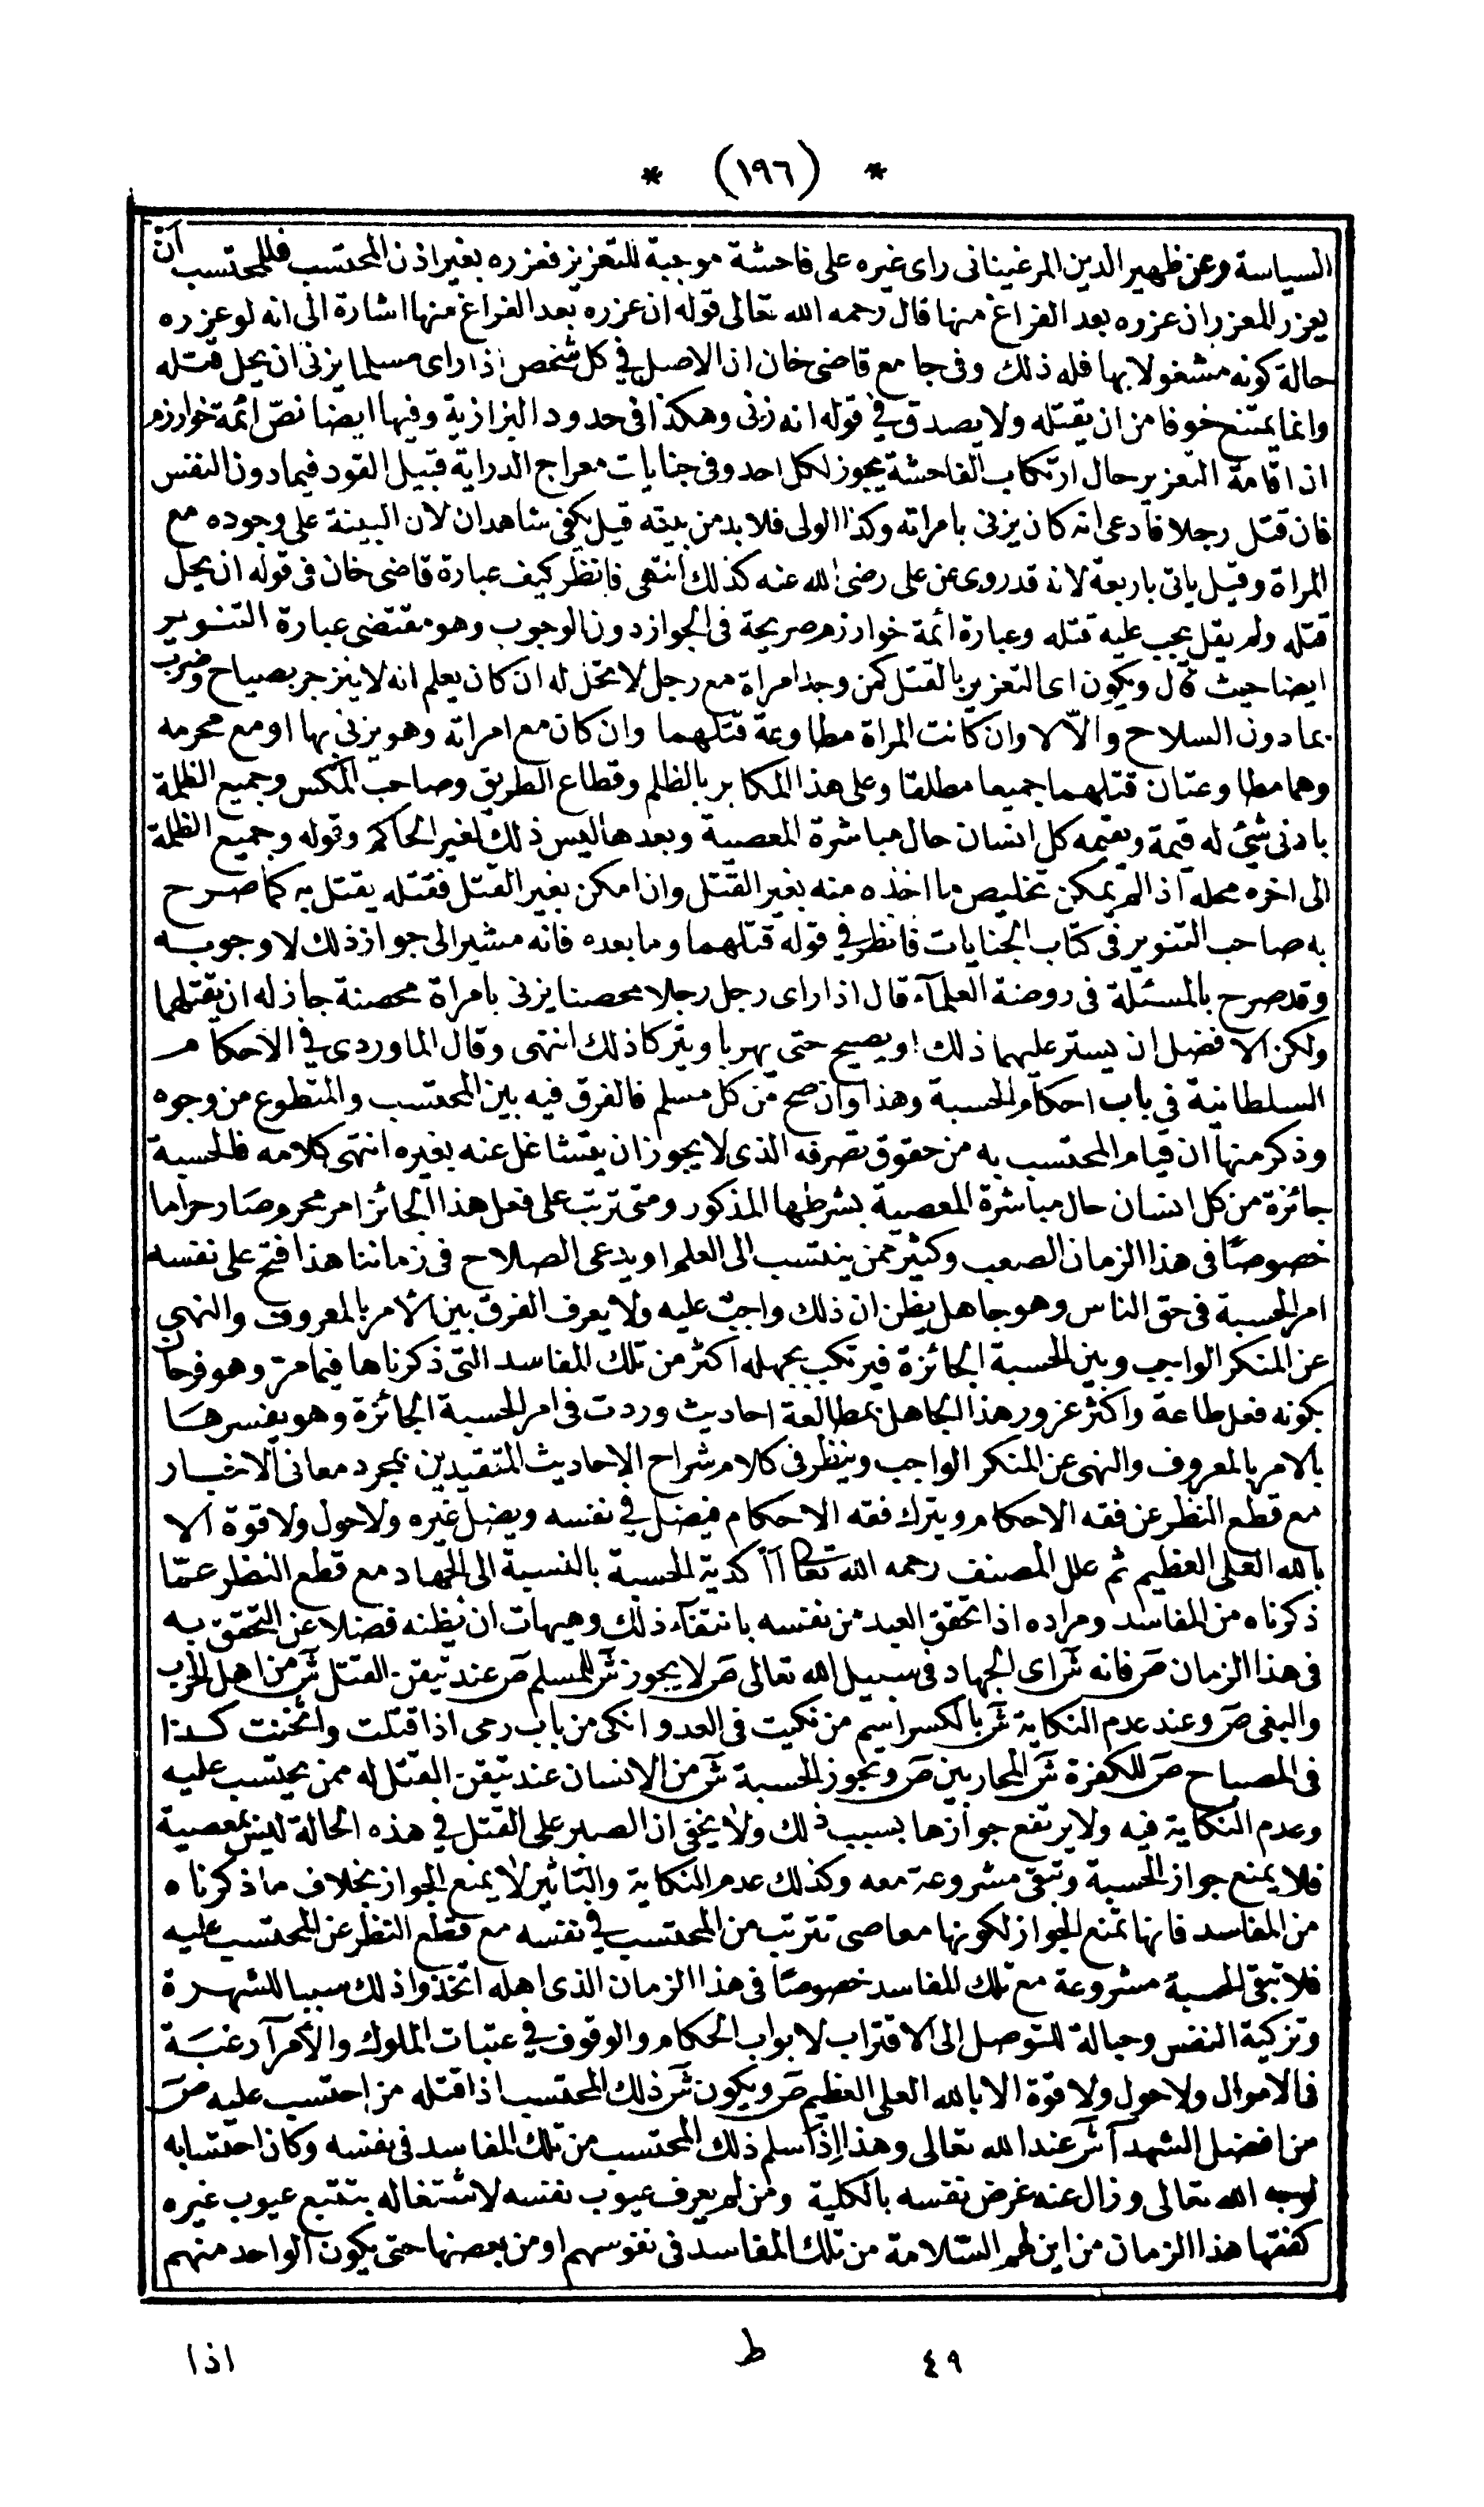 * (١٩٦) *
السياسة وعن ظهير الدين المرغينانى راى غيره على فاحشة موجبة للتعزيز فعزره بغير اذن المحتسب فللمحتسب ان
يعزر المعزر ان عزره بعد الفراغ منها قال رحمه الله تعالى قوله ان عزره بعد الفراغ منها اشارة الى انه لو عزره
حالة كونه مشغولا بها فله ذلك وفى جامع قاضى خان ان الاصل فى كل شخص اذا راى مسلما يزنى ان يحل قتله
وانما يمتنع خوفا من ان يقتله ولا يصدق فى قوله انه زنى وهكذا فى حدود البزازية وفيها ايضا نصّ ائمة خوارزم
ان اقامة التعزير حال ارتكاب الفاحشة يجوز لكل احد وفى جنايات معراج الدراية قبيل القود فيما دون النفس
فان قتل رجلا فادعى انه كان يزنى بامراته وكذا الولى فلا بد من بينه قيل يكفى شاهدان لان البينة على وجوده مع
المراة وقيل ياتى باربعة لانه قد روى عن على رضى الله عنه كذلك انتهى فانظر كيف عبارة قاضى خان فى قوله ان يحل
قتله ولم يقل يجب عليه قتله وعبارة ائمة خوارزم صريحة فى الجواز دون الوجوب وهو مقتضى عبارة التنوير
ايضا حيث قال ويكون اى التعزير بالقتل كمن وجد امراة مع رجل لا تحل له ان كان يعلم انه لا ينزجر بصياح وضرب
بما دون السلاح والّا لا وان كانت المراة مطاوعة قتلهما وان كان مع امراته وهو يزنى بها او مع محرمه
وهما مطاوعتان قتلهما جميعا مطلقا وعلى هذا المكابر بالظلم وقطاع الطريق وصاحب المكس وجميع الظلمة
بادنى شئ له قيمة ويقيمه كل انسان حال مباشرة المعصية وبعدها ليس ذلك لغير الحاكم وقوله وجميع الظلمة
الى اخره محله اذا لم يمكن تخليص ما اخذه منه بغير القتل وان امكن بغير القتل فقتله يقتل به كما صرح
به صاحب التنوير فى كتاب الجنايات فانظر فى قوله قتلهما وما بعده فانه مشير الى جواز ذلك لا وجوبه
وقد صرح بالمسئلة فى روضة العلمآء قال اذا راى رجل رجلا محصنا يزنى بامراة محصنة جاز له ان يقتلهما
ولكن الافضل ان يستر عليهما ذلك او يصيح حتى يهربا ويتركا ذلك انتهى وقال الماوردى فى الاحكام
السلطانية فى باب احكام الحسبة وهذا وان صح من كل مسلم فالفرق فيه بين المحتسب والمتطوع من وجوه
وذكر منها ان قيام المحتسب به من حقوق تصرفه الذى لا يجوز ان يتشاغل عنه بغيره انتهى كلامه فالحسبة
جائزة من كل انسان حال مباشرة المعصية بشرطها المذكور ومتى ترتب على فعل هذا الجائز امر محرم صار حراما
خصوصًا فى هذا الزمان الصعب وكثير ممن ينتسب الى العلم او يدعى الصلاح فى زماننا هذا فتح على نفسه
امر الحسبة فى حق الناس وهو جاهل يظن ان ذلك واجب عليه ولا يعرف الفرق بين الامر بالمعروف والنهى
عن المنكر الواجب وبين الحسبة الجائزة فيرتكب بجهله اكثر من تلك المفاسد التى ذكرناها فيما مرّ وهو فرحان
بكونه فعل طاعة واكثر غرور هذا الجاهل بمطالعة احاديث وردت فى امر الحسبة الجائزة وهو يفسرها
بالامر بالمعروف والنهى عن المنكر الواجب وينظر فى كلام شراح الاحاديث المتقيدين بمجرد معانى الاخبار
مع قطع النظر عن فقه الاحكام ويترك فقه الاحكام فيضل فى نفسه ويضل غيره ولا حول ولا قوة الا
بالله العلى العظيم ثم علل المصنف رحمه الله تعالى آكدية الحسبة بالنسبة الى الجهاد مع قطع النظر عمّا
ذكرناه من المفاسد ومراده اذا تحقق العبد من نفسه بانتفآء ذلك وهيهات ان يظنه فضلا عن التحقق به
فى هذا الزمان صَ فانه شَ اى الجهاد فى سبيل الله تعالى صَ لا يجوز شَ للمسلم صَ عند تيقن القتل شَ من اهل الحرب
والبغى صَ وعند عدم النكاية شَ بالكسر اسم من نكيت فى العدو انكى من باب رمى اذا قتلت واثخنت كذا
فى المصباح صَ للكفرة شَ المحاربين صَ وتجوز الحسبة شَ من الانسان عند تيقن القتل له ممن يحتسب عليه
وعدم النكاية فيه ولا يرتفع جوازها بسبب ذلك ولا يخفى ان الصبر على القتل فى هذه الحالة ليس بمعصية
فلا يمنع جواز الحسبة وتبقى مشروعة معه وكذلك عدم النكاية والتاثير لا يمنع الجواز بخلاف ما ذكرناه
من المفاسد فانها تمنع الجواز لكونها معاصى تترتب من المحتسب فى نفسه مع قطع النظر عن المحتسب عليه
فلا تبقى الحسبة مشروعة مع تلك المفاسد خصوصًا فى هذا الزمان الذى اهله اتخذوا ذلك سببا للشهرة
وتزكية النفس وحبالة للتوصل الى الاقتراب لابواب الحكام والوقوف فى عتبات الملوك والامرآء رغبَة
فى الاموال ولا حول ولا قوة الا بالله العلى العظيم صَ ويكون شَ ذلك المحتسب اذا قتله من احتسب عليه صَ
من افضل الشهدآء شَ عند الله تعالى وهذا إذا سلم ذلك المحتسب من تلك المفاسد فى نفسه وكان احتسابه
لوجه الله تعالى وزال عنه غرض نفسه بالكلية ومن لم يعرف عيوب نفسه لاشتغاله بتتبع عيوب غيره
كفقها هذا الزمان من اين لهم السّلامة من تلك المفاسد فى نفوسهم او من بعضها حتى يكون الواحد منهم
٤٩ ط اذا